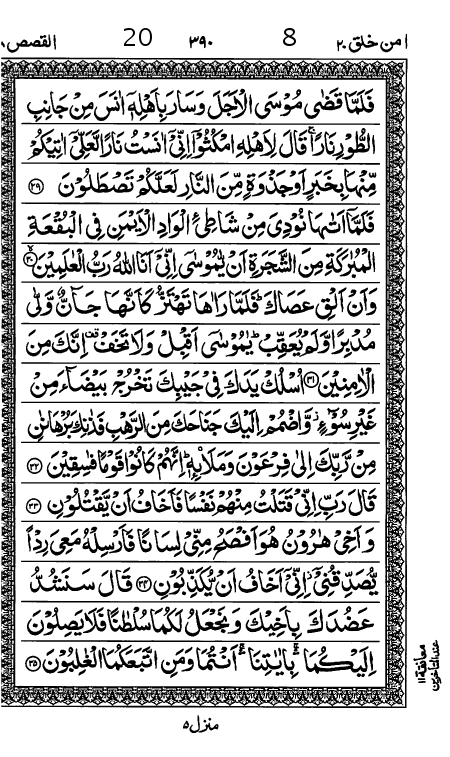 امن خلق ٢٠ 8 ٣٩٠ 20 القصص ٢٨
فَلَمَّا قَضٰى مُوْسَى الْاَجَلَ وَسَارَ بِاَهْلِهٖٓ اٰنَسَ مِنْ جَانِبِ
الطُّوْرِ نَارًا ۚ قَالَ لِاَهْلِهِ امْكُثُوْٓا اِنِّيْٓ اٰنَسْتُ نَارًا لَّعَلِّيْٓ اٰتِيْكُمْ
مِّنْهَا بِخَبَرٍ اَوْ جَذْوَةٍ مِّنَ النَّارِ لَعَلَّكُمْ تَصْطَلُوْنَ ﴿٢٩﴾
فَلَمَّآ اَتٰىهَا نُوْدِيَ مِنْ شَاطِئِ الْوَادِ الْاَيْمَنِ فِى الْبُقْعَةِ
الْمُبٰرَكَةِ مِنَ الشَّجَرَةِ اَنْ يّٰمُوْسٰٓى اِنِّيْٓ اَنَا اللّٰهُ رَبُّ الْعٰلَمِيْنَ ﴿٣٠﴾
وَاَنْ اَلْقِ عَصَاكَ ؕ فَلَمَّا رَاٰهَا تَهْتَزُّ كَاَنَّهَا جَآنٌّ وَّلّٰى
مُدْبِرًا وَّلَمْ يُعَقِّبْ ؕ يٰمُوْسٰٓى اَقْبِلْ وَلَا تَخَفْ ۫ اِنَّكَ مِنَ
الْاٰمِنِيْنَ ﴿٣١﴾ اُسْلُكْ يَدَكَ فِيْ جَيْبِكَ تَخْرُجْ بَيْضَآءَ مِنْ
غَيْرِ سُوْٓءٍ ۫ وَّاضْمُمْ اِلَيْكَ جَنَاحَكَ مِنَ الرَّهْبِ فَذٰنِكَ بُرْهَانٰنِ
مِنْ رَّبِّكَ اِلٰى فِرْعَوْنَ وَمَلَا۠ئِهٖ ؕ اِنَّهُمْ كَانُوْا قَوْمًا فٰسِقِيْنَ ﴿٣٢﴾
قَالَ رَبِّ اِنِّيْ قَتَلْتُ مِنْهُمْ نَفْسًا فَاَخَافُ اَنْ يَّقْتُلُوْنِ ﴿٣٣﴾
وَاَخِيْ هٰرُوْنُ هُوَ اَفْصَحُ مِنِّيْ لِسَانًا فَاَرْسِلْهُ مَعِيَ رِدْاً
يُّصَدِّقُنِيْٓ ۫ اِنِّيْٓ اَخَافُ اَنْ يُّكَذِّبُوْنِ ﴿٣٤﴾ قَالَ سَنَشُدُّ
عَضُدَكَ بِاَخِيْكَ وَنَجْعَلُ لَكُمَا سُلْطٰنًا فَلَا يَصِلُوْنَ
اِلَيْكُمَا ۛ بِاٰيٰتِنَآ ۛ اَنْتُمَا وَمَنِ اتَّبَعَكُمَا الْغٰلِبُوْنَ ﴿٣٥﴾
معانقة ١١
عند المتأخرين
منزل ٥